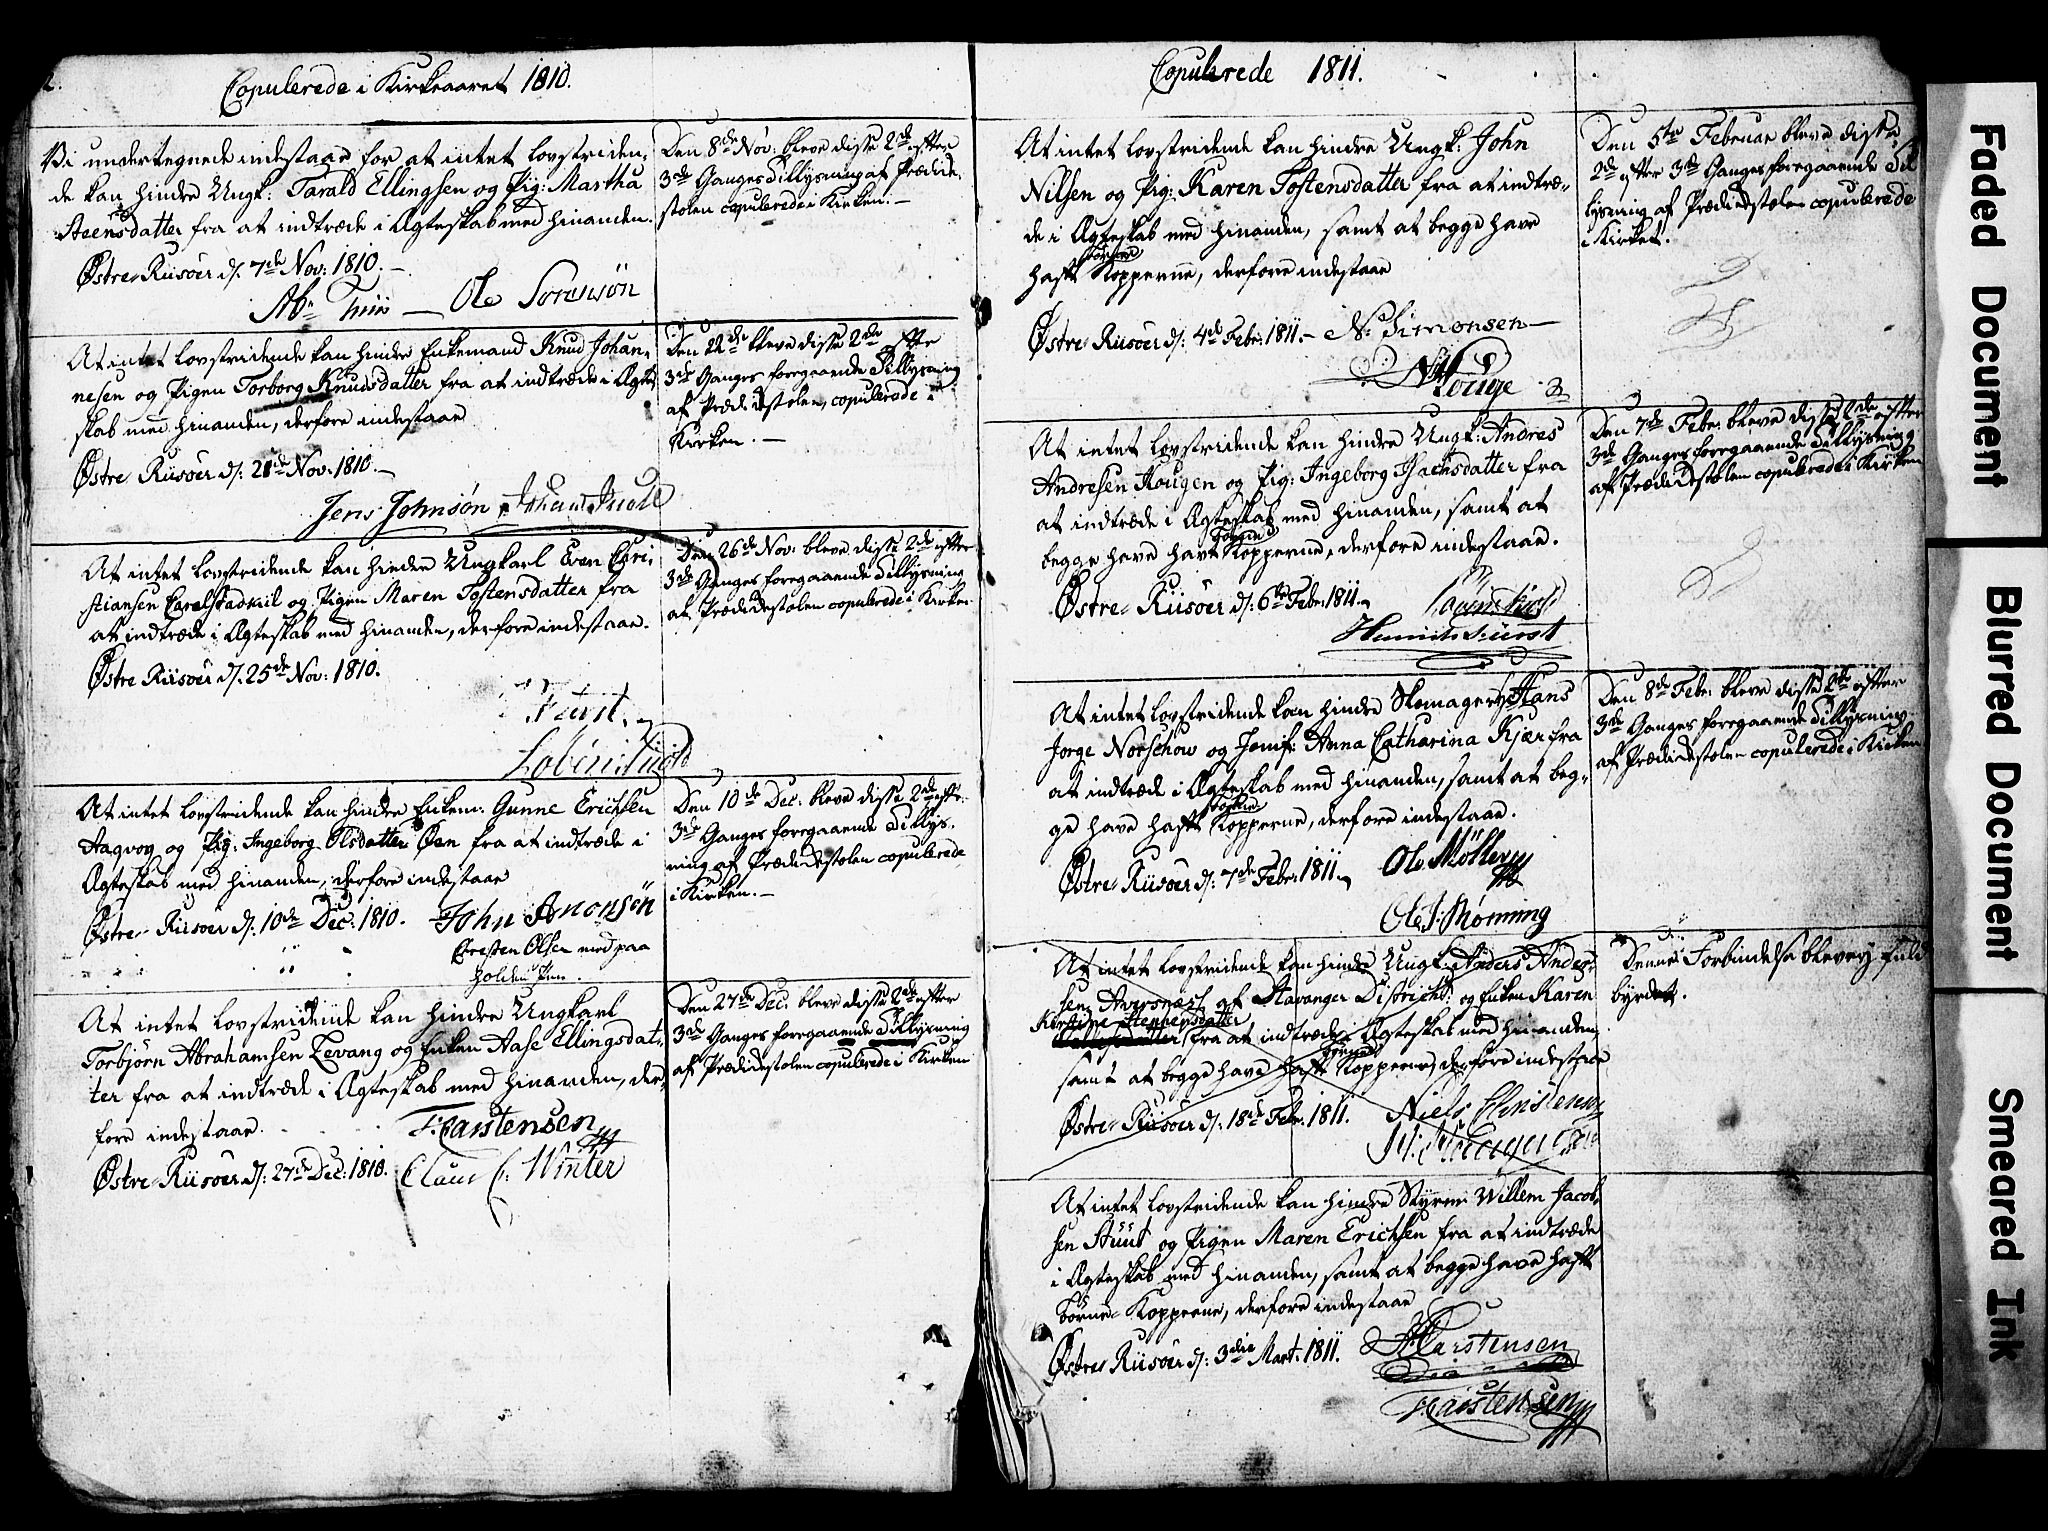 2.
Copulerede i Kirkeaaret 1810.
Vi undertegnede indestaar for at intet lovstriden-
de kan hindre Ungk: Tarald Ellingsen og Pig: Martha
Steensdatter fra at indtræde i Ægteskab med hinanden.
Østre-Riisøer d/: 7de Nov: 1810.
Ole Sörensön
Den 8de Nov: bleve disse 2de efter
3de Ganges Tillysning af Prædike-
stolen copulerede i Kirken.-
At intet lovstridende kan hindre Enkemand Knud Johan-
nesen og Pigen Torborg Knudsdatter fra at indtræde i Ægte
skab med hinanden, derfore indestaar
Østre Riisöer d/: 21de Nov: 1810.-
Jens Johnsön
Den 22de bleve disse 2de efter
3de Ganges foregaaende Tillysning
af Prædikestolen, copulerede i
Kirken.-
At intet lovstridende kan hindre Ungkarl Even Chri-
stiansen Carelstadkiil og Pigen Maren Tostensdatter fra
at indtræde i Ægteskab med hinanden, derfore indestaar.
Østre Riisöer d/. 25de Nov: 1810.
Den 26de Nov: bleve disse 2de efter
3de Ganges foregaaende Tillysning
af Prædikestolen copulerede i Kirken
At intet lovstridende kan hindre Enkem: Gunne Erichsen
Aagvog og Pig: Ingeborg Olsdatter Øen fra at indtræde i
Ægteskab med hinanden, derfore indestaar
Østre-Riisöer d/: 10de Dec: 1810. John Anonsön
Cresten Olsen med paa
holden Pen.
Den 10de Dec: bleve disse 2de efter
3de Ganges foregaaende Tillys-
ning af Prædikestolen copulerede
i Kirken.-
At intet lovstridende kan hindre Ungkarl
Torbjörn Abrahamsen Levang og Enken Aase Ellingsdat-
ter fra at indtræde i Ægteskab med hinanden, der-
fore indestaar.
Carstensen
Østre-Riisöer d/: 27de Dec: 1810. Claus C: Winter
Den 27de Dec: bleve disse 2de efter
3de Ganges foregaaende Tillysning
af Prædikestolen copulerede i Kirken
Copulerede 1811.
At intet lovstridende kan hindre Ungk: John
Nilsen og Pig: Karen Tostensdatter fra at indtræ-
de i Ægteskab med hinanden, samt at begge have
havt Kopperne, derfore indestaar
Østre-Riisöer d/: 4de Febr: 1811.- N: Simonsen
Den 5te Februar bleve disse
2de efter 3de Ganges foregaaende Til
lysning af Prædikestolen copulerede
i Kirken.
At intet lovstridende kan hindre Ungk: Andres
Andresen Hougen og Pig: Ingeborg Isachsdatter fra
at indtræde i Ægteskab med hinanden, samt at
begge have havt Kopperne, derfore indestaar.
Østre-Riisöer d/: 6te Febr: 1811.
Den 7de Febr: bleve disse 2de efter
3de Ganges foregaaende Tillysning
af Prædikestolen copulerede i Kirken
At intet lovstridende kan hindre Skomager Hans
Jorge Norschow og Jomf: Anna Catharina Kjær fra
at indtræde i Ægteskab med hinanden, samt at beg-
ge have havt Kopperne, derfore indestaar.
Østre-Riisöer d/: 7de Febr: 1811. Ole Möller
Ole J: Mønning
Den 8de Febr: bleve disse 2de efter
3de Ganges foregaaende Tillysning
af Prædikestolen copulerede i Kirken
At intet lovstridende kan hindre Ungk: Anders Ander-
sen af Stavanger District: og Enken Karen
Kirstine
fra at indtræde i Ægteskab med hinanden,
samt at begge have havt Kopperne, derfore indestaar
Østre-Riisöer d/: 18de Febr: 1811. Niels Christensen
Denne Forbindelse blev ej fuld
byrdet.
At intet lovstridende kan hindre Styrm: Willem Jacob-
sen Stüüs og Pigen Maren Erichsen fra at indtræde
i Ægteskab med hinanden, samt at begge have havt
Børne-Kopperne, derfore indestaar
Østre Riisöer d/: 3die Mart: 1811. Carstensen
Carstensen
Faded Document
Blurred Document
Smeared Ink